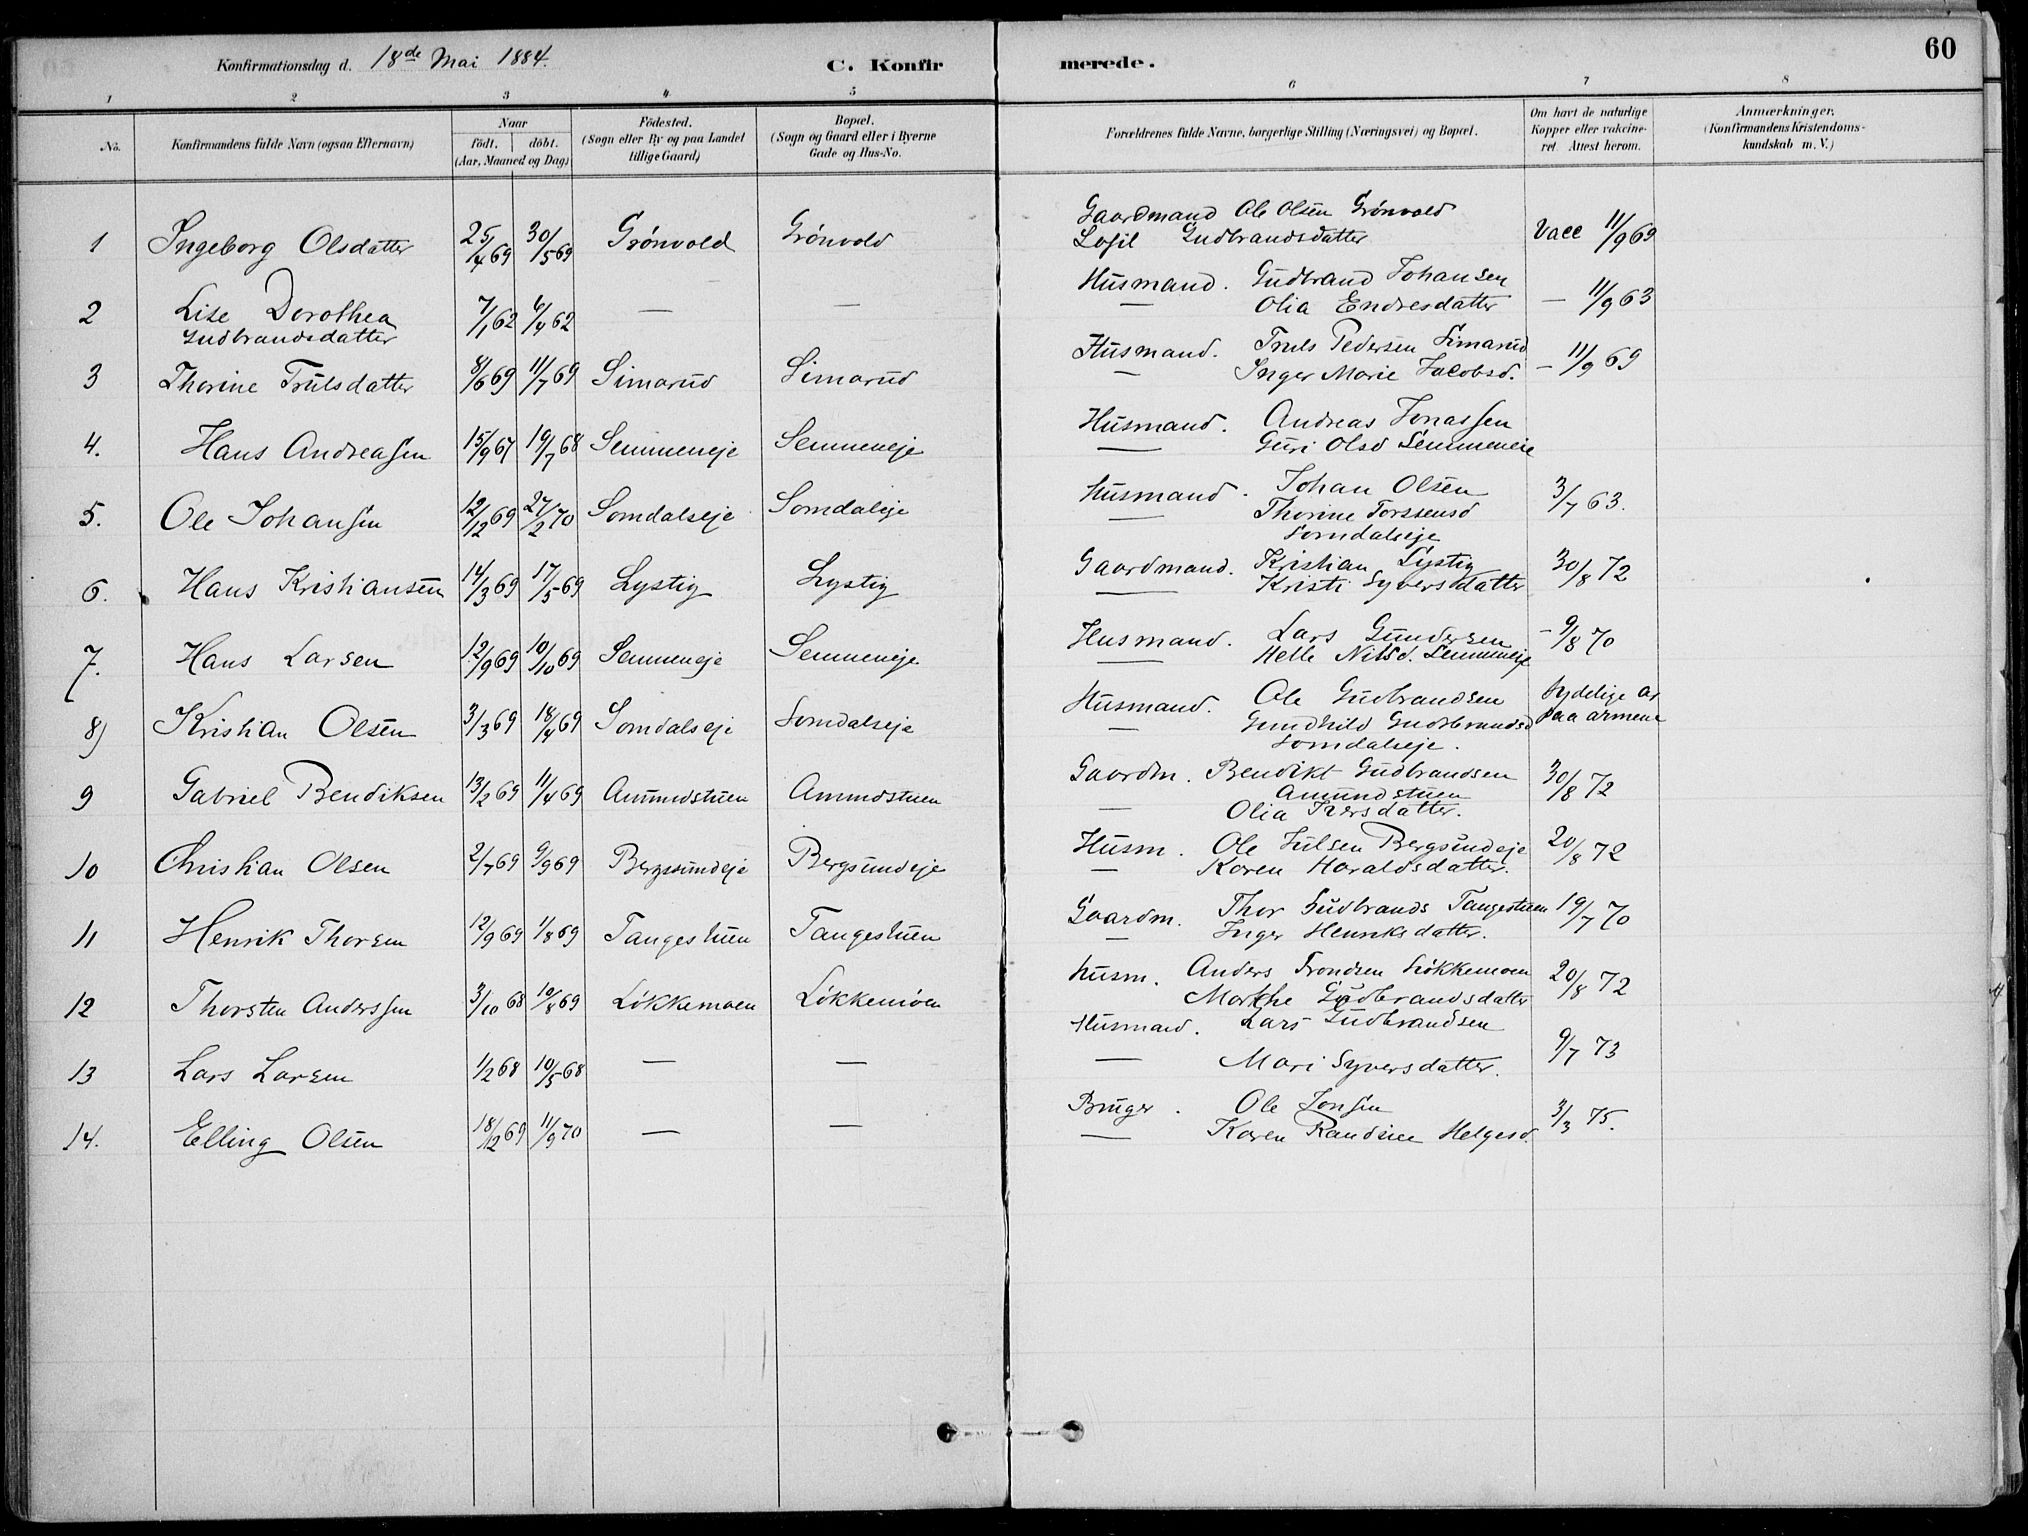 60
Konfirmationsdag d. 18de Mai 1884. C. Konfirmerede.
1 2 3 4 5 6 7 8
No. Konfirmandens fulde Navn (ogsaa Efternavn) Naar født. døbt. (Aar, Maaned og Dag) Fødested. (Sogn eller By og paa Landet tillige Gaard) Bopæl. (Sogn og Gaard eller i Byerne Gade og Hus-No. Forældrenes fulde Navne, borgerlige Stilling (Næringsvei) og Bopæl. Om havt de naturlige Kopper eller vakcineret. Attest herom. Anmærkninger. (Konfirmandens Kristendomskundskab m. V.)
1 Ingeborg Olsdatter 25/4 69 30/5 69 Grönvold Grönvold Gaardmand Ole Olsen Grönvold
Gudbrandsdatter Vacc 11/9 69
2 Lise Dorothea Gudbrandsdatter 7/1 62 6/4 62 — — Husmand. Gudbrand Johansen
— Olia Endresdatter — 11/9 63
3 Thorine Trulsdatter 8/6 69 11/7 69 Simarud Simarud Husmand. Truls Pedersen Simarud
— Inger Marie Jacobsd. — 11/9 69
4. Hans Andreassen 15/9 67 19/7 68 Semmeneje Semmeneje Husmand. Andreas Jonassen
— Guri Olsd Semmeneie
5. Ole Johansen 12/12 69 27/2 70 Somdalseje Somdaleje Husmand. Johan Olsen
— Thorine Torssensd
Somdalseje 3/7 63.
6. Hans Kristiansen 14/3 69 17/5 69 Lystig Lystig Gaardmand. Kristian Lystig
— Kristi Syversdatter 30/8 72
7. Hans Larsen 12/9 69 10/10 69 Semmeneje Semmeneje Husmand. Lars Gundersen
— Helle Nilsd. Semmeneje — 9/8 70
8) Kristian Olsen 3/3 69 18/4 69 Somdalseje Somdalseje Husmand. Ole Gudbrandsen
— Gundhild Gudbrandsd
Somdalseje. tydelige ar paa armene
9 Gabriel Bendiksen 13/2 69 11/4 69 Amundstuen Amundstuen Gaardm. Bendikt Gudbrandsen
Amundstuen
— Olia Iversdatter. 30/8 72
10 Christian Olsen 2/7 69 9/9 69 Bergsundeje Bergsundeje Husm. Ole Julsen Bergsundeje
— Karen Haraldsdatter. 20/8 72
11 Henrik Thorsen 12/9 69 1/8 69 Tangestuen Tangestuen Gaardm. Thor Gudbrands Tangestuen
— Inger Henriksdatter. 19/7 70
12 Thorsten Anderssen 3/10 68 10/8 69 Lökkemoen Lökkemoen Husm. Anders Trondsen Lökkemoen
Marthe Gudbrandsdatter 20/8 72
13 Lars Larsen 1/2 68 10/5 68 — — Husmand. Lars Gudbrandsen
— Mari Syversdatter. 9/7 73
14. Elling Olsen 18/12 69 11/9 70 — — Bruger. Ole Jonsen
— Karen Randine Helgesd. 3/3 75.